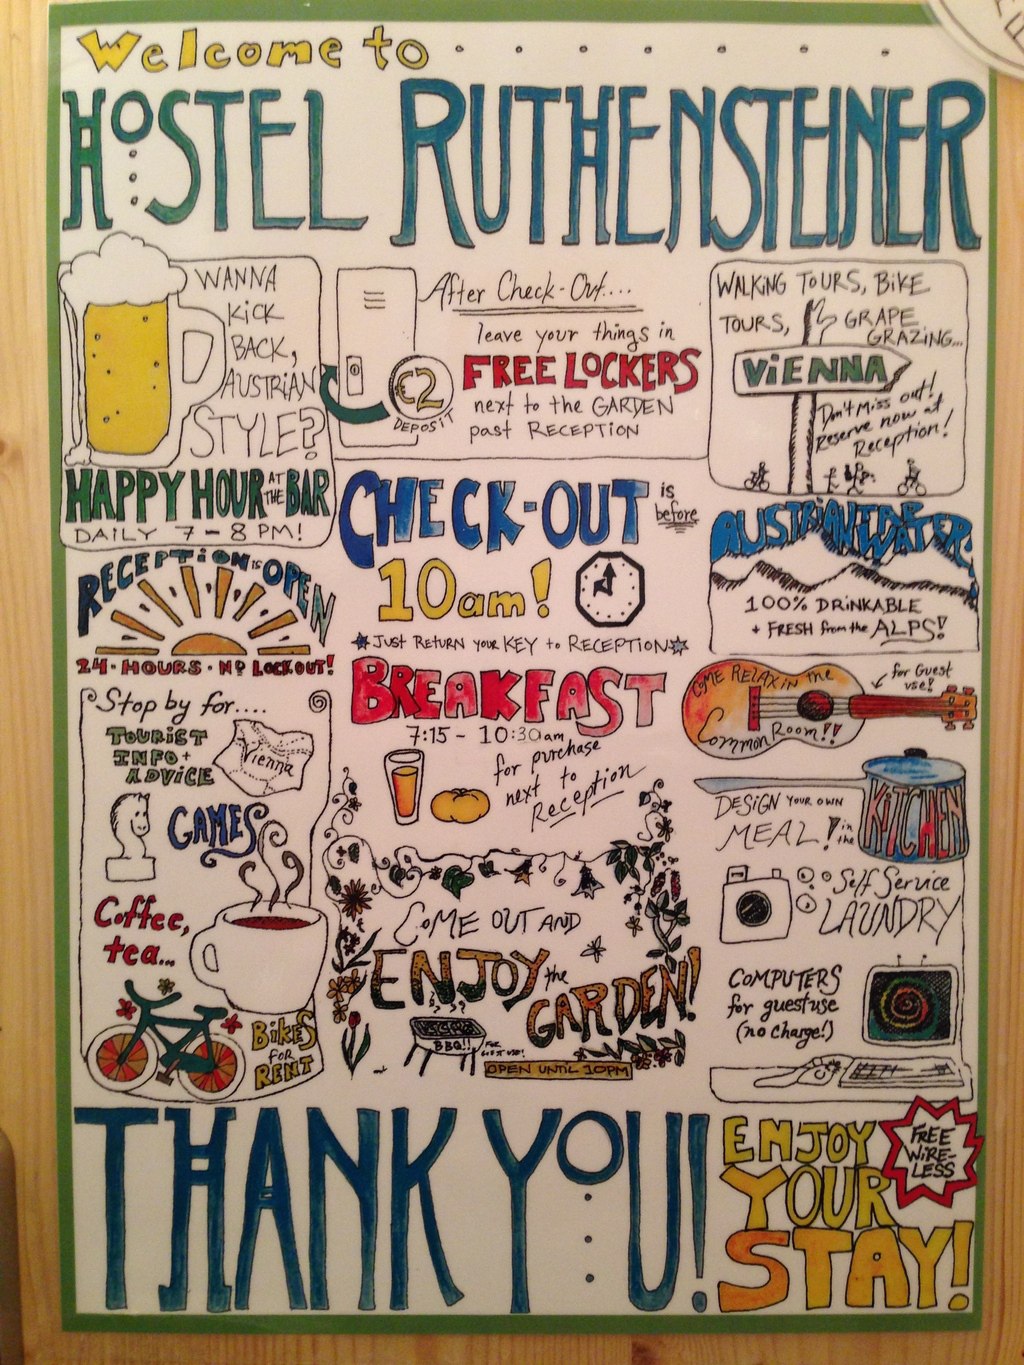 Welcome to
HOSTEL RUTHENSTEINER
WANNA
KICK
BACK,
AUSTRIAN
STYLE?
HAPPY HOUR AT THE BAR
DAILY 7 - 8 PM!
After Check-Out....
leave your things in
FREE LOCKERS
next to the GARDEN
past RECEPTION
€2
DEPOSIT
WALKING TOURS, BIKE
TOURS, GRAPE
GRAZING...
VIENNA
Don't Miss out!
Reserve now at
Reception!
CHECK-OUT is before
10am!
JUST RETURN YOUR KEY to RECEPTION
RECEPTION IS OPEN
24-HOURS-NO LOCKOUT!
AUSTRIAN TAP WATER
100% DRINKABLE
+ FRESH from the ALPS!
BREAKFAST
7:15 - 10:30am
for purchase
next to
Reception
COME RELAX IN the
Common Room!!
for Guest
use!
Stop by for....
TOURIST
INFO +
ADVICE
Vienna
GAMES
Coffee,
tea...
BIKES
FOR
RENT
DESIGN YOUR OWN
MEAL! in the
KITCHEN
Self Service
LAUNDRY
COMPUTERS
for guest use
(no charge!)
COME OUT AND
ENJOY the
GARDEN!
BBQ!!
OPEN UNTIL 10PM
THANK YOU!
ENJOY
YOUR
STAY!
FREE
WIRE-
LESS